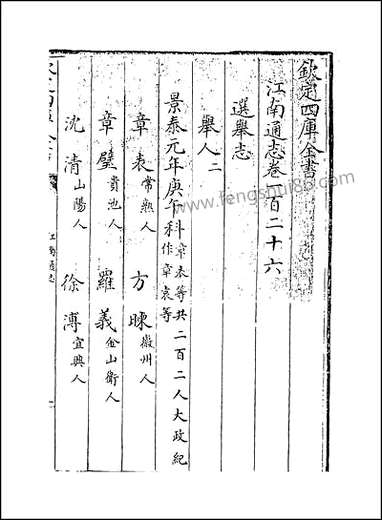 欽定四庫全書
江南通志卷一百二十六
選舉志
舉人二
景泰元年庚午科章表等共二百二人大政紀作章袁等
章表常熟人 方暕徽州人
章璧貴池人 羅義金山衛人
沈清山陽人 徐溥宜興人
www.fengshui86.com